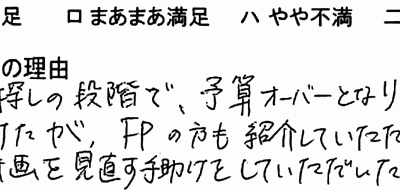 足 ロ まあまあ満足 ハ やや不満 ニ
の理由
探しの段階で、予算オーバーとなり
けたが、FPの方も紹介していただ
画を見直す手助けとしていただいた